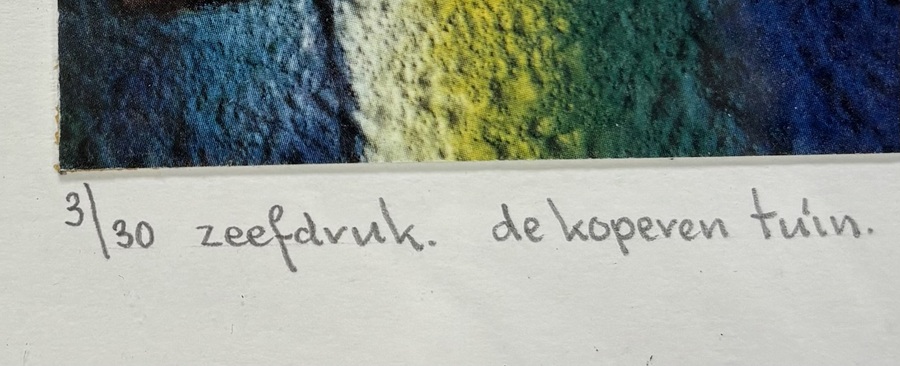 3/30 zeefdruk. de koperen tuin.